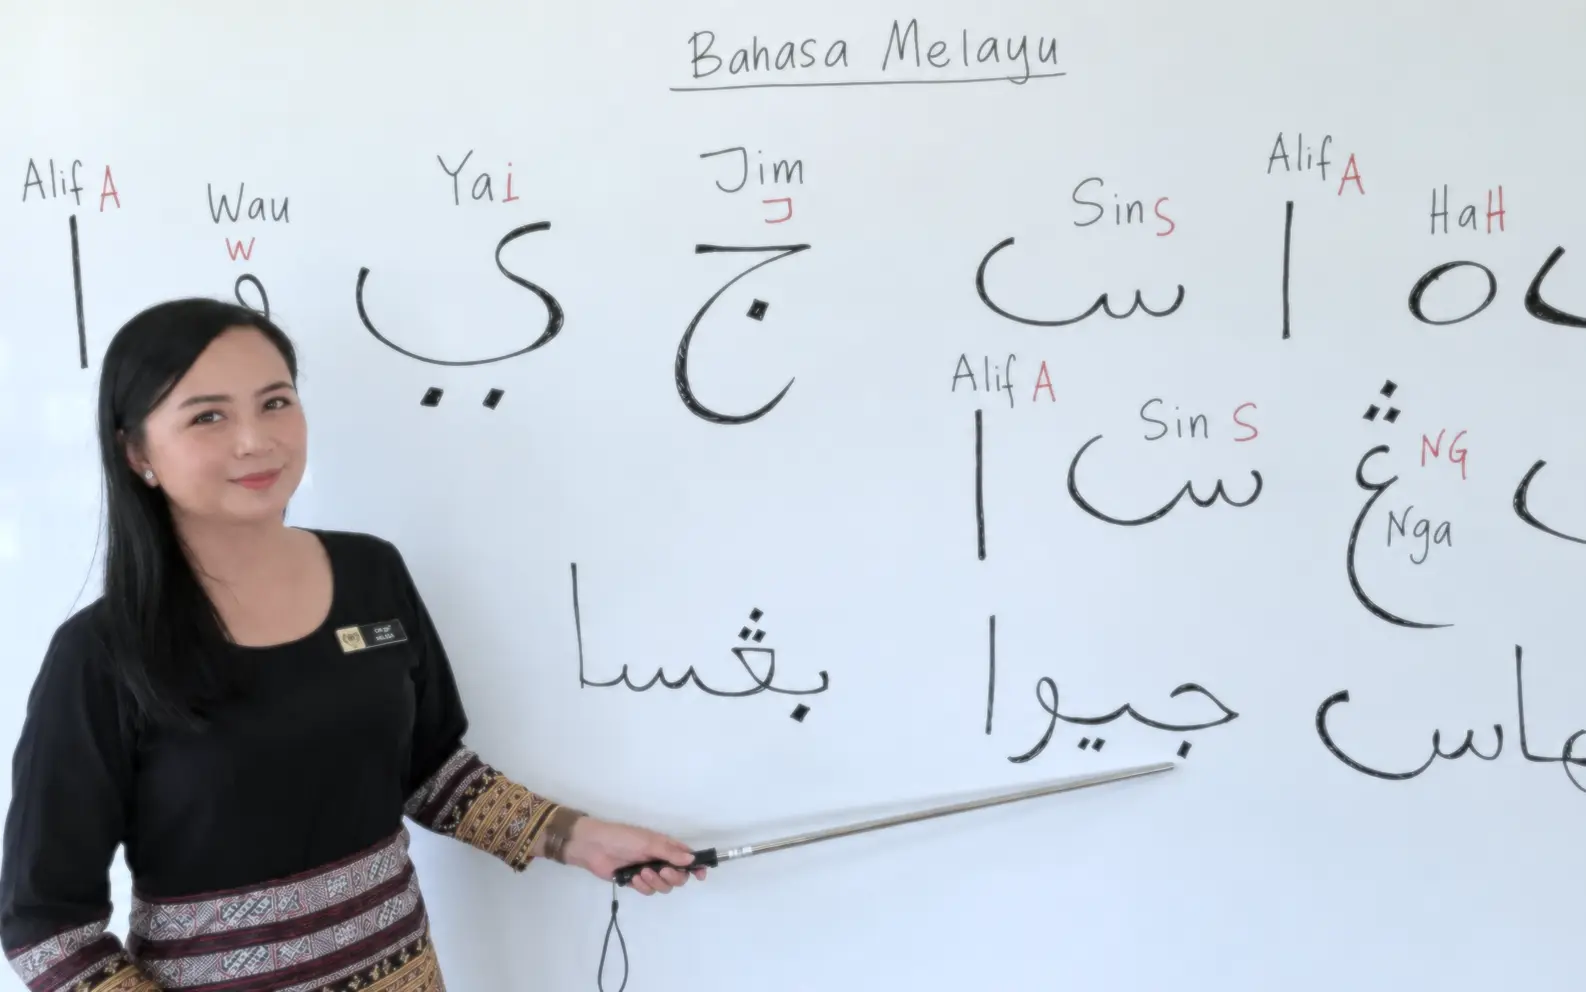 Bahasa Melayu
Alif A Wau W Ya i Jim J Sin S Alif A Ha H
ا و ي ج س ا ه
Alif A Sin S NG Nga
ا س ڠ
بڠسا جيوا